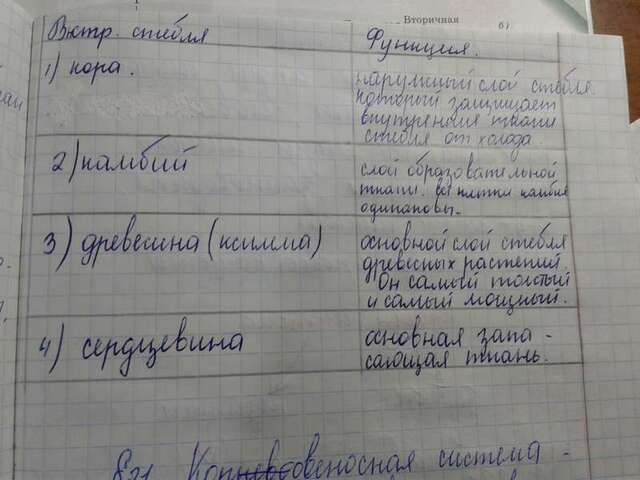 Вторичная
Внутр. стебля
Функция.
1) кора.
наружный слой стебля
который защищает
внутренния ткани
стебля от холода.
2) камбий
слой образовательной
ткани. все клетки камбия
одинаковы.
3) древесина (ксилема)
основной слой стебля
древисных растений.
Он самый толстый
и самый мощный.
4) сердцевина
основная запа-
сающая ткань.
§21 система -